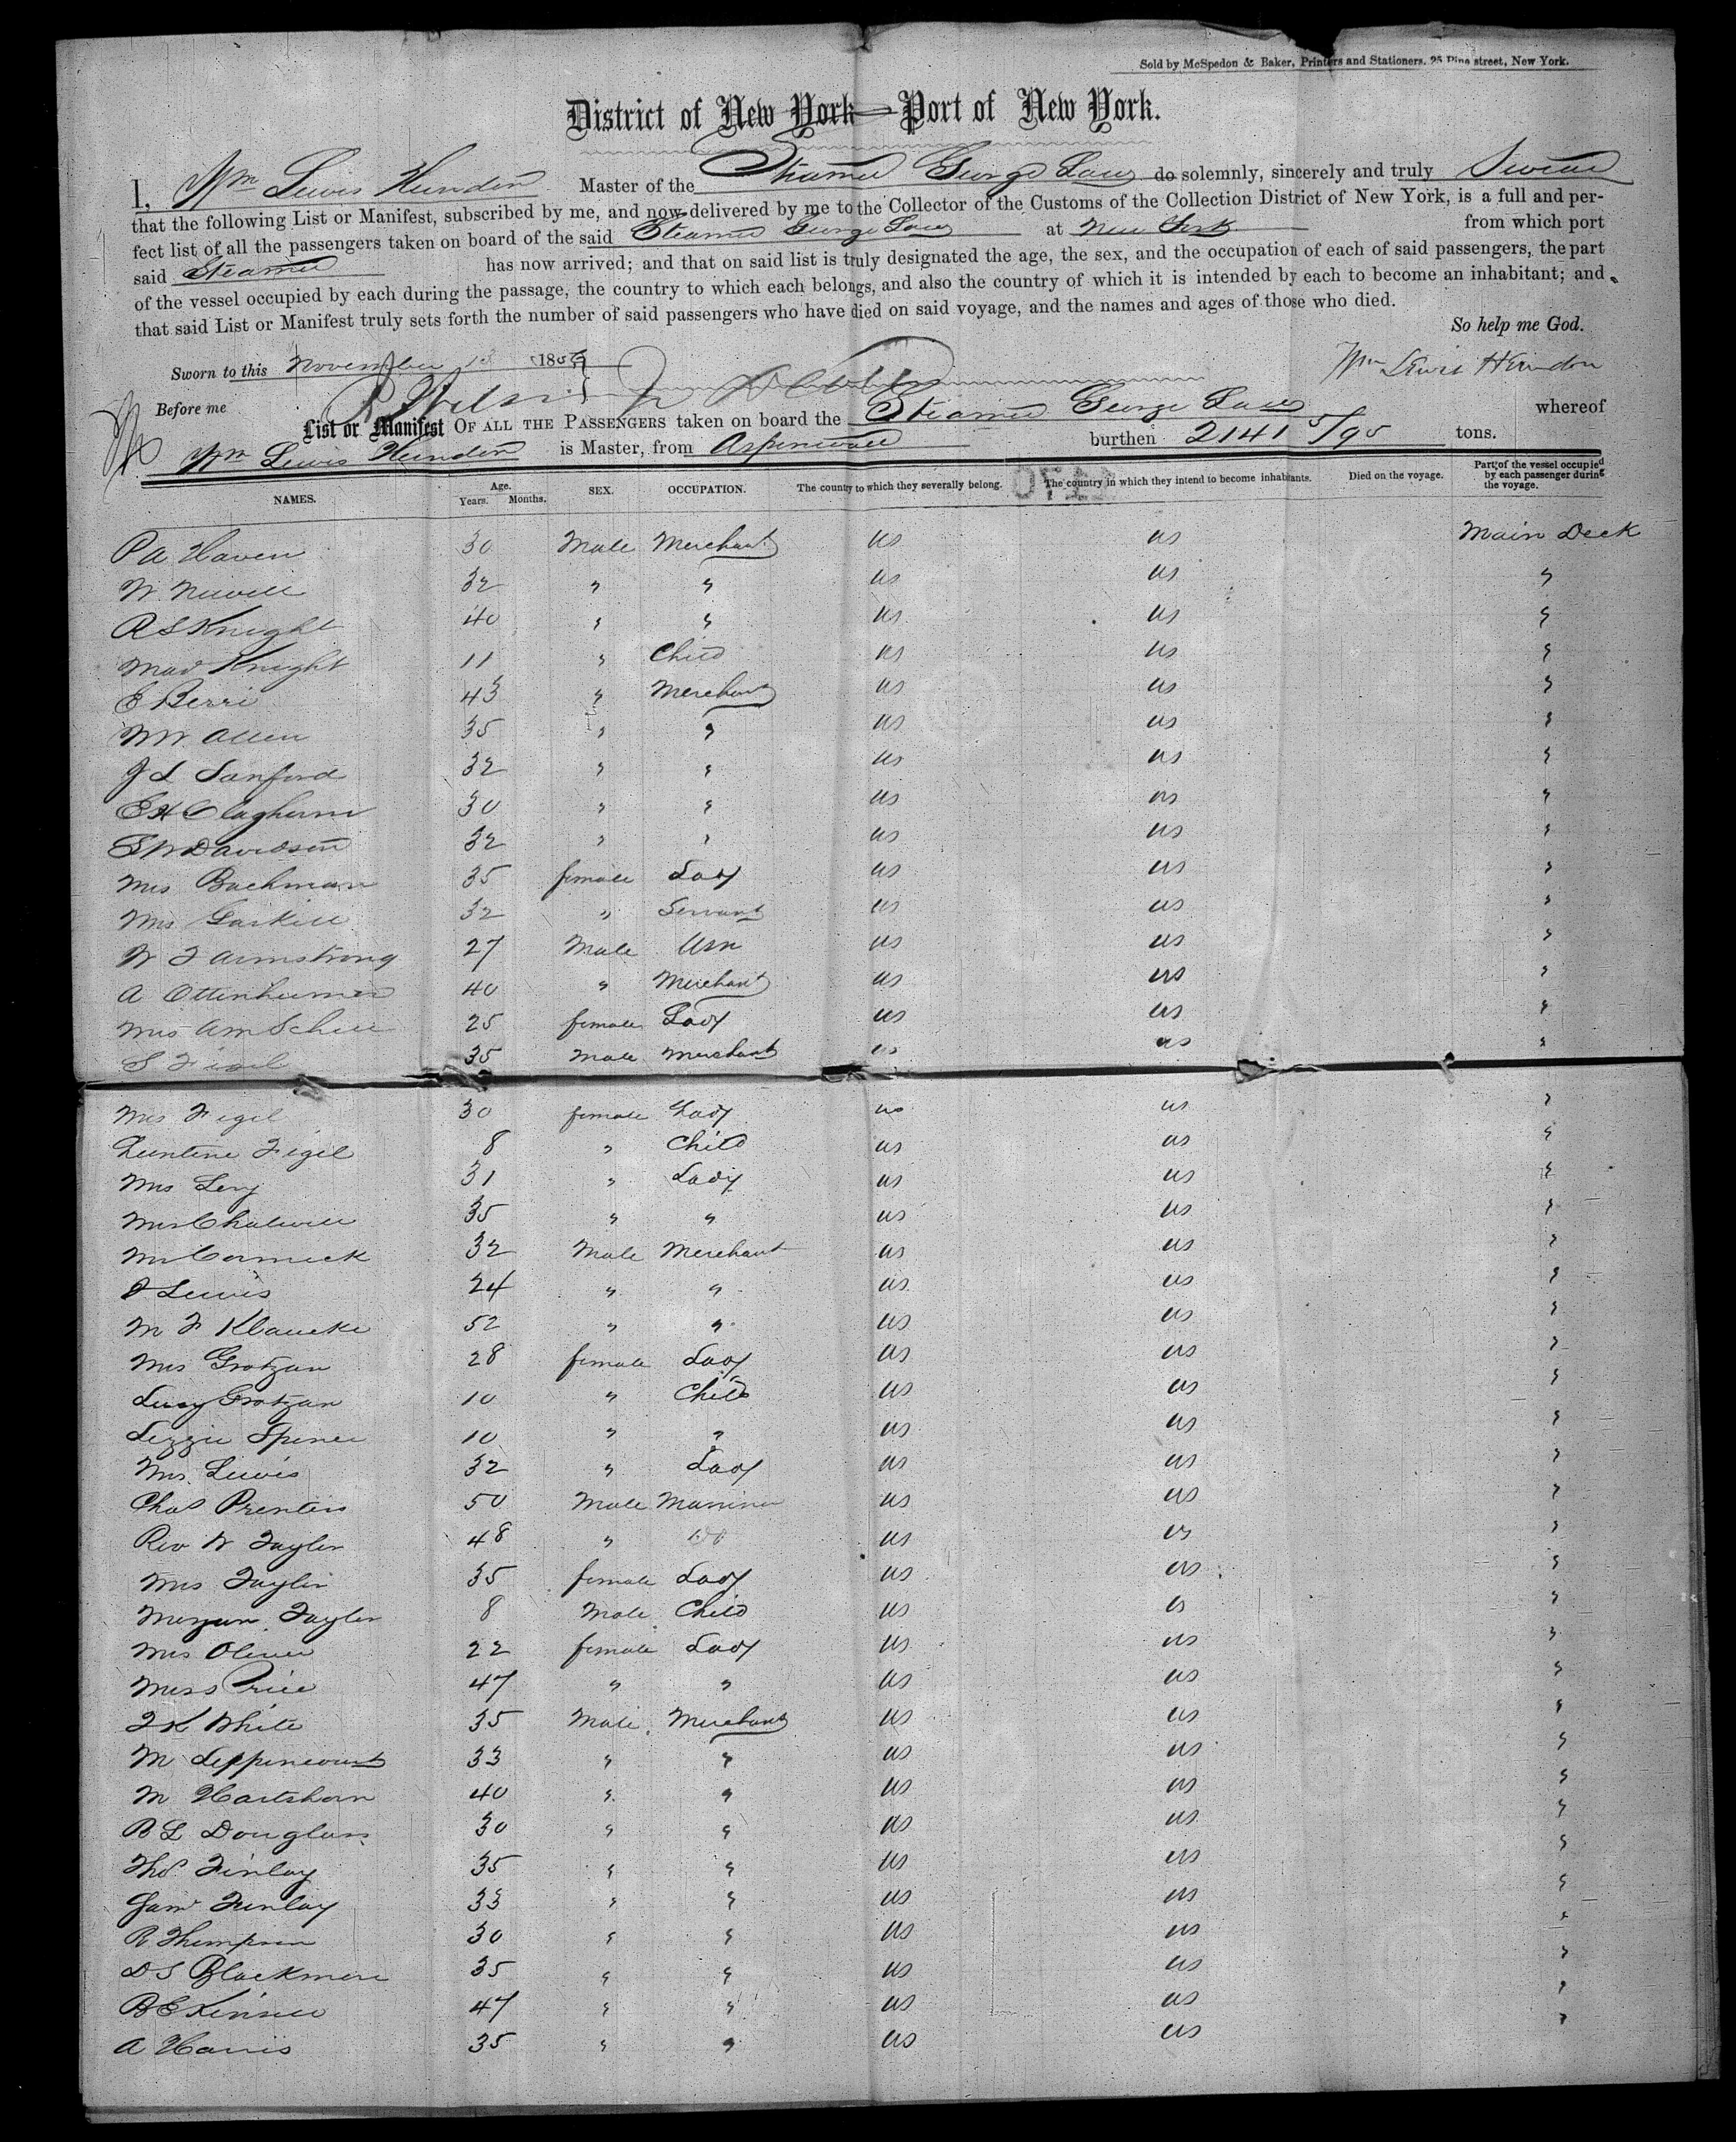 Sold by McSpedon & Baker, Printers and Stationers, 25 Pine street, New York.
District of New York—Port of New York.
I, Wm Lewis Herndon Master of the Steamer George Law do solemnly, sincerely and truly Swear
that the following List or Manifest, subscribed by me, and now delivered by me to the Collector of the Customs of the Collection District of New York, is a full and per-
fect list of all the passengers taken on board of the said Steamer George Law at New York from which port
said Steamer has now arrived; and that on said list is truly designated the age, the sex, and the occupation of each of said passengers, the part
of the vessel occupied by each during the passage, the country to which each belongs, and also the country of which it is intended by each to become an inhabitant; and
that said List or Manifest truly sets forth the number of said passengers who have died on said voyage, and the names and ages of those who died.
So help me God.
Sworn to this November 13 1856
Wm Lewis Herndon
Before me
List or Manifest OF ALL THE PASSENGERS taken on board the Steamer George Law whereof
Wm Lewis Herndon is Master, from Aspinwall burthen 2141 5/95 tons.
NAMES. Age. Years. Months. SEX. OCCUPATION. The country to which they severally belong. The country in which they intend to become inhabitants. Died on the voyage. Part of the vessel occupied by each passenger during the voyage.
P A Haven 30 Male Merchant US US Main Deck
W. Newell 32 " " US US "
R S Knight 40 " " US US "
Mas Knight 11 " Child US US "
E Berri 43 " Merchant US US "
W W Allen 35 " " US US "
J L Sanford 32 " " US US "
E H Claghorn 30 " " US US "
S W Davidson 32 " " US US "
Mrs Bachman 35 female Lady US US "
Mrs Gaskill 32 " Servant US US "
W F Armstrong 27 Male USN US US "
A Ottenheimer 40 " Merchant US US "
Mrs Am Schell 25 female Lady US US "
S Figel 35 Male Merchant US US "
Mrs Figel 30 female Lady US US "
Figel 8 " Child US US "
Mrs Levy 31 " Lady US US "
Mrs Chalwell 35 " " US US "
McCormick 32 Male Merchant US US "
J Lewis 24 " " US US "
M F Klaucke 52 " " US US "
Mrs Grotzan 28 female Lady US US "
Lucy Grotzan 10 " Child US US "
Lizzie Spence 10 " " US US "
Mrs. Lewis 32 " Lady US US "
Chas Prentiss 50 Male Mariner US US "
Rev W Taylor 48 " US US "
Mrs Taylor 35 female Lady US US "
Morgan Taylor 8 Male Child US US "
Mrs Oliver 22 female Lady US US "
Miss Price 47 " " US US "
J K White 35 Male Merchant US US "
M Lippincourt 33 " " US US "
M Hartshorn 40 " " US US "
B L Douglass 30 " " US US "
Thos Finlay 35 " " US US "
Finlay 33 " " US US "
R Thompson 30 " " US US "
D S Blackmore 35 " " US US "
B E Kinsell 47 " " US US "
A Harris 35 " " US US "